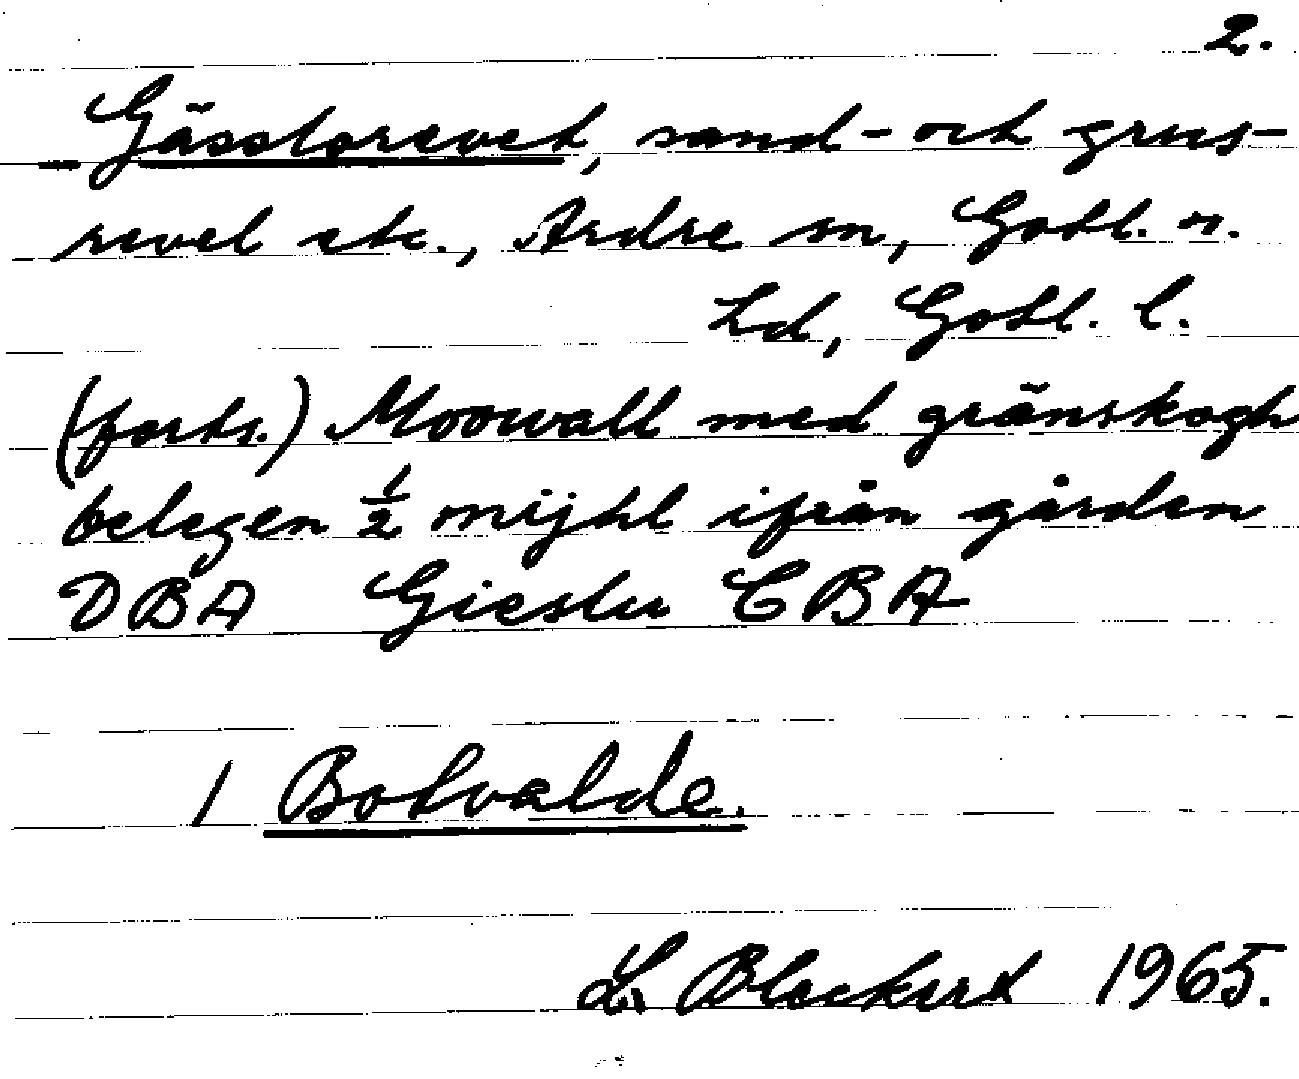 2.
Gässlorevet, sand- och grus-
revel etc., Ardre sn, Gotl. n.
Ld, Gotl. l.
(forts.) Moowall med gränskogh
belegen ½ mijhl ifrån gården
DBA Gieslu CBA
1 Botvalde.
L. Bleckert 1965.